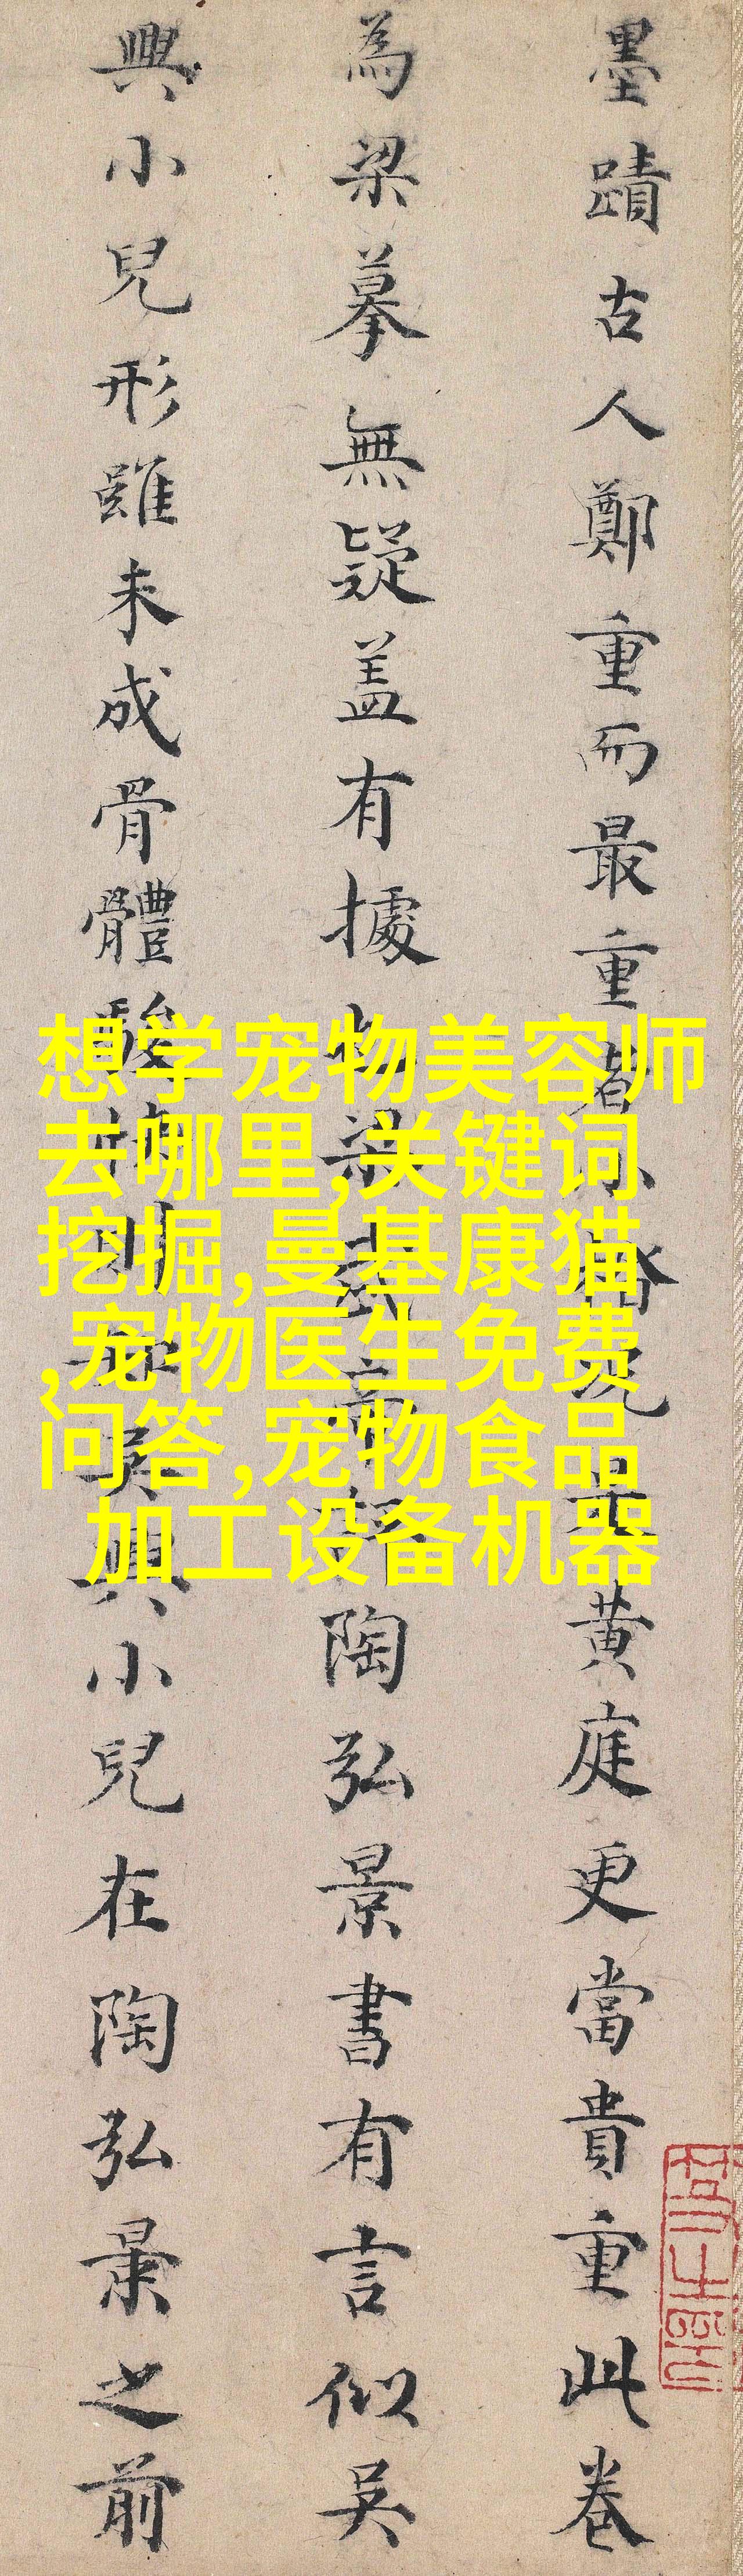 墨蹟古人鄭重而最重者小楷況是黃庭更當貴重此卷
為梁摹無疑盖有據也梁武帝評陶弘景書有言似吳
興小兒形雖未成骨體駿快則知吳興小兒在陶弘景之前
想学宠物美容师
去哪里,关键词
挖掘,曼基康猫
,宠物医生免费
问答,宠物食品
加工设备机器